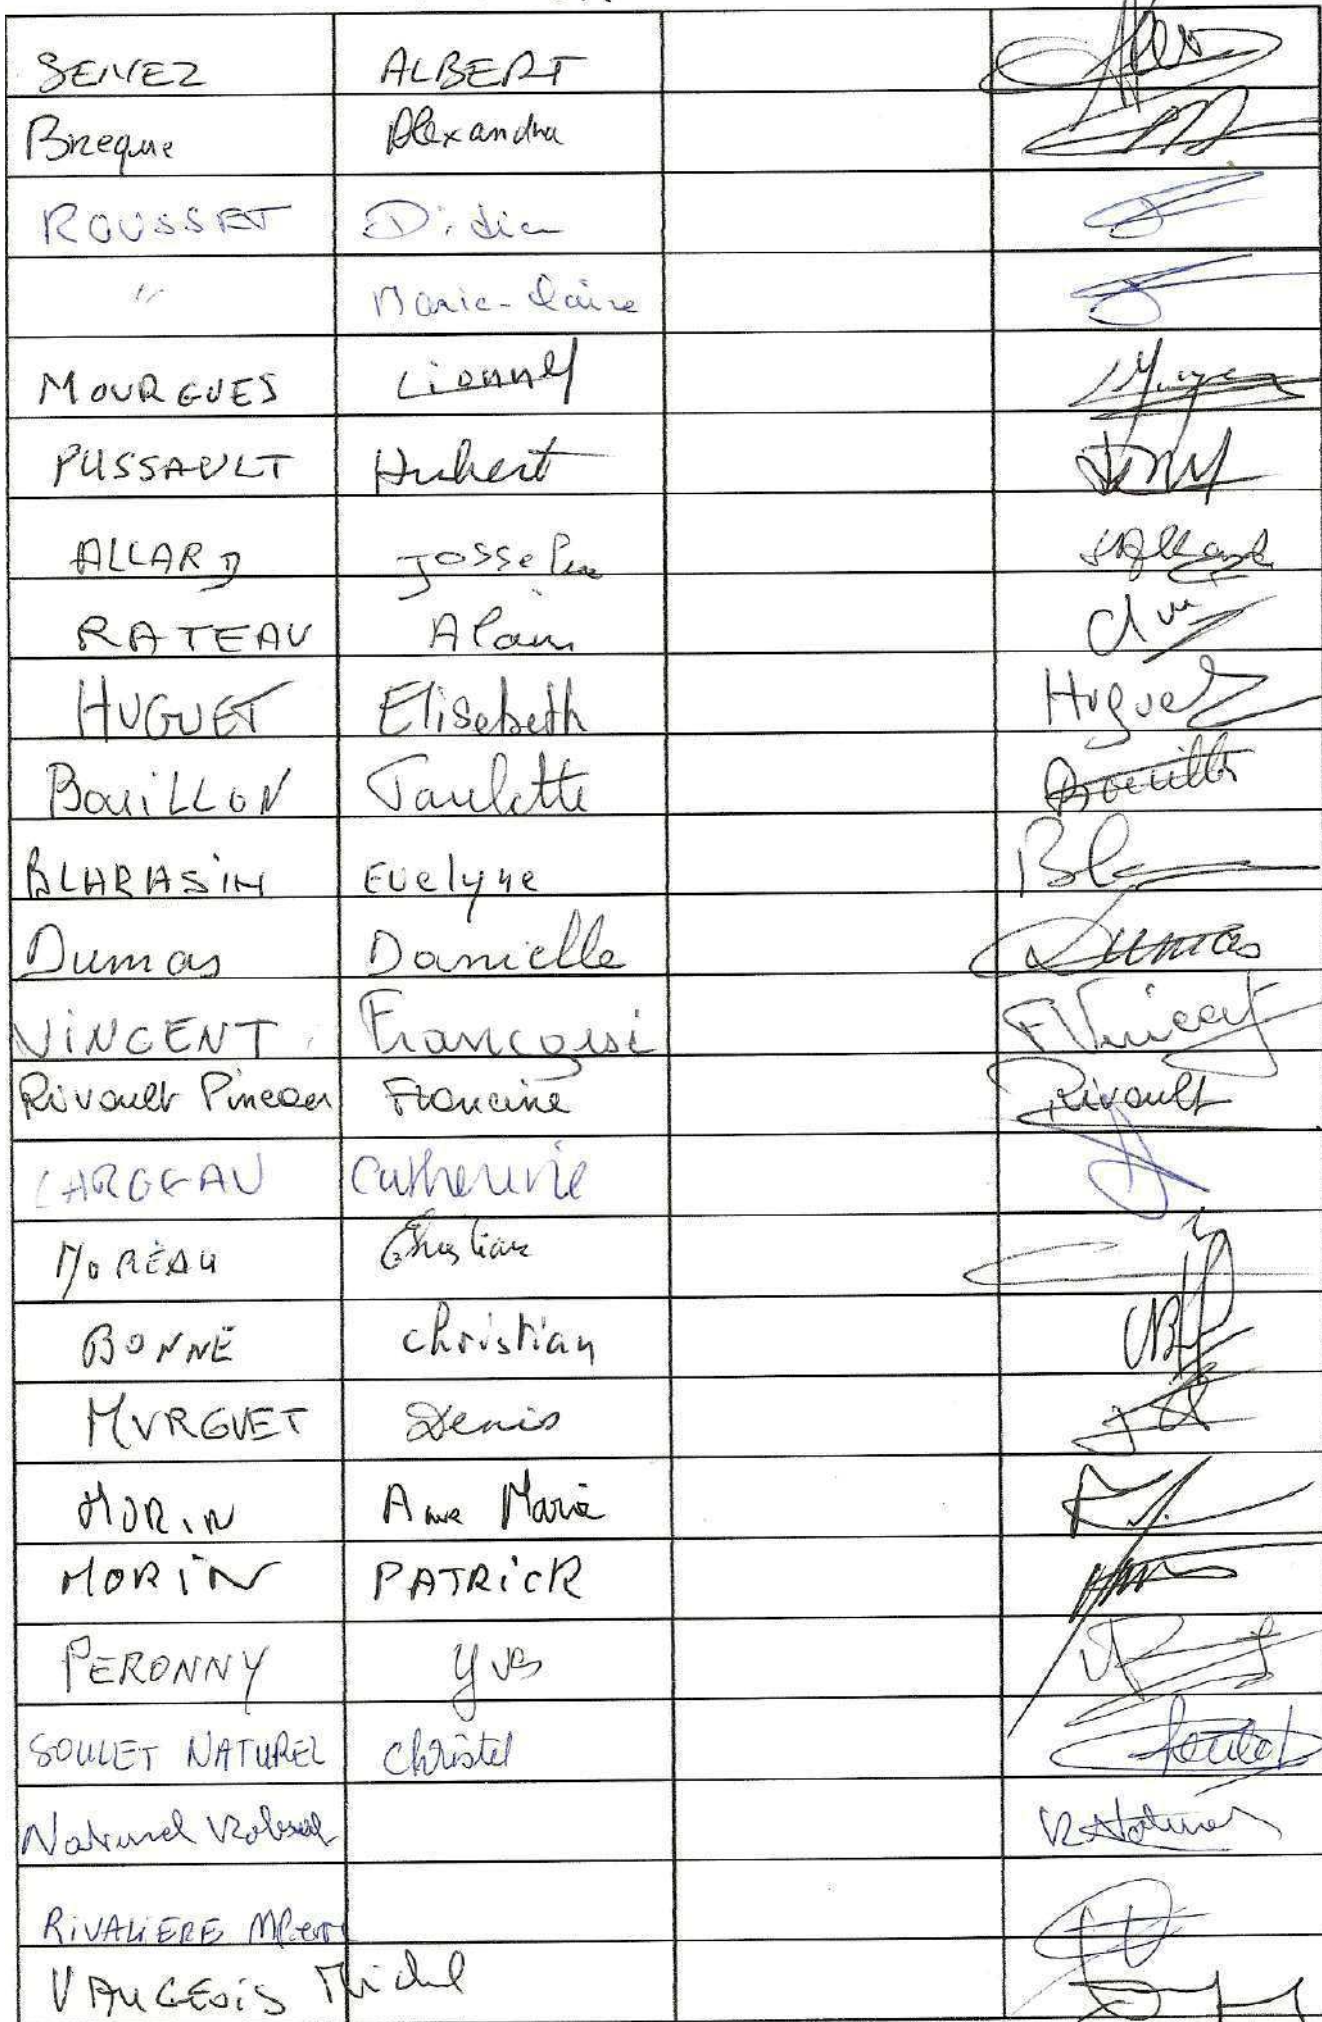 SENEZ ALBERT
Breque Alexandra
ROUSSET Didier
" Marie-Claire
MOURGUES Lionnel
PUSSAULT Hubert
ALLARD Josseline
RATEAU Alain
HUGUET Elisabeth Huguet
BouiLLON Paulette Bouillon
BLARASIN Evelyne
Dumas Danielle Dumas
VINCENT Françoise F Vincent
Rivault Pineau Francine Rivault
LARGEAU Catherine
MOREAU Christian
BONNE Christian
MURGUET Denis
MORIN Anne Marie
MORIN PATRICK
PERONNY Yves
SOULET NATUREL Christel Soulet
Naturel
RIVALIERE
VAUGEOIS Michel